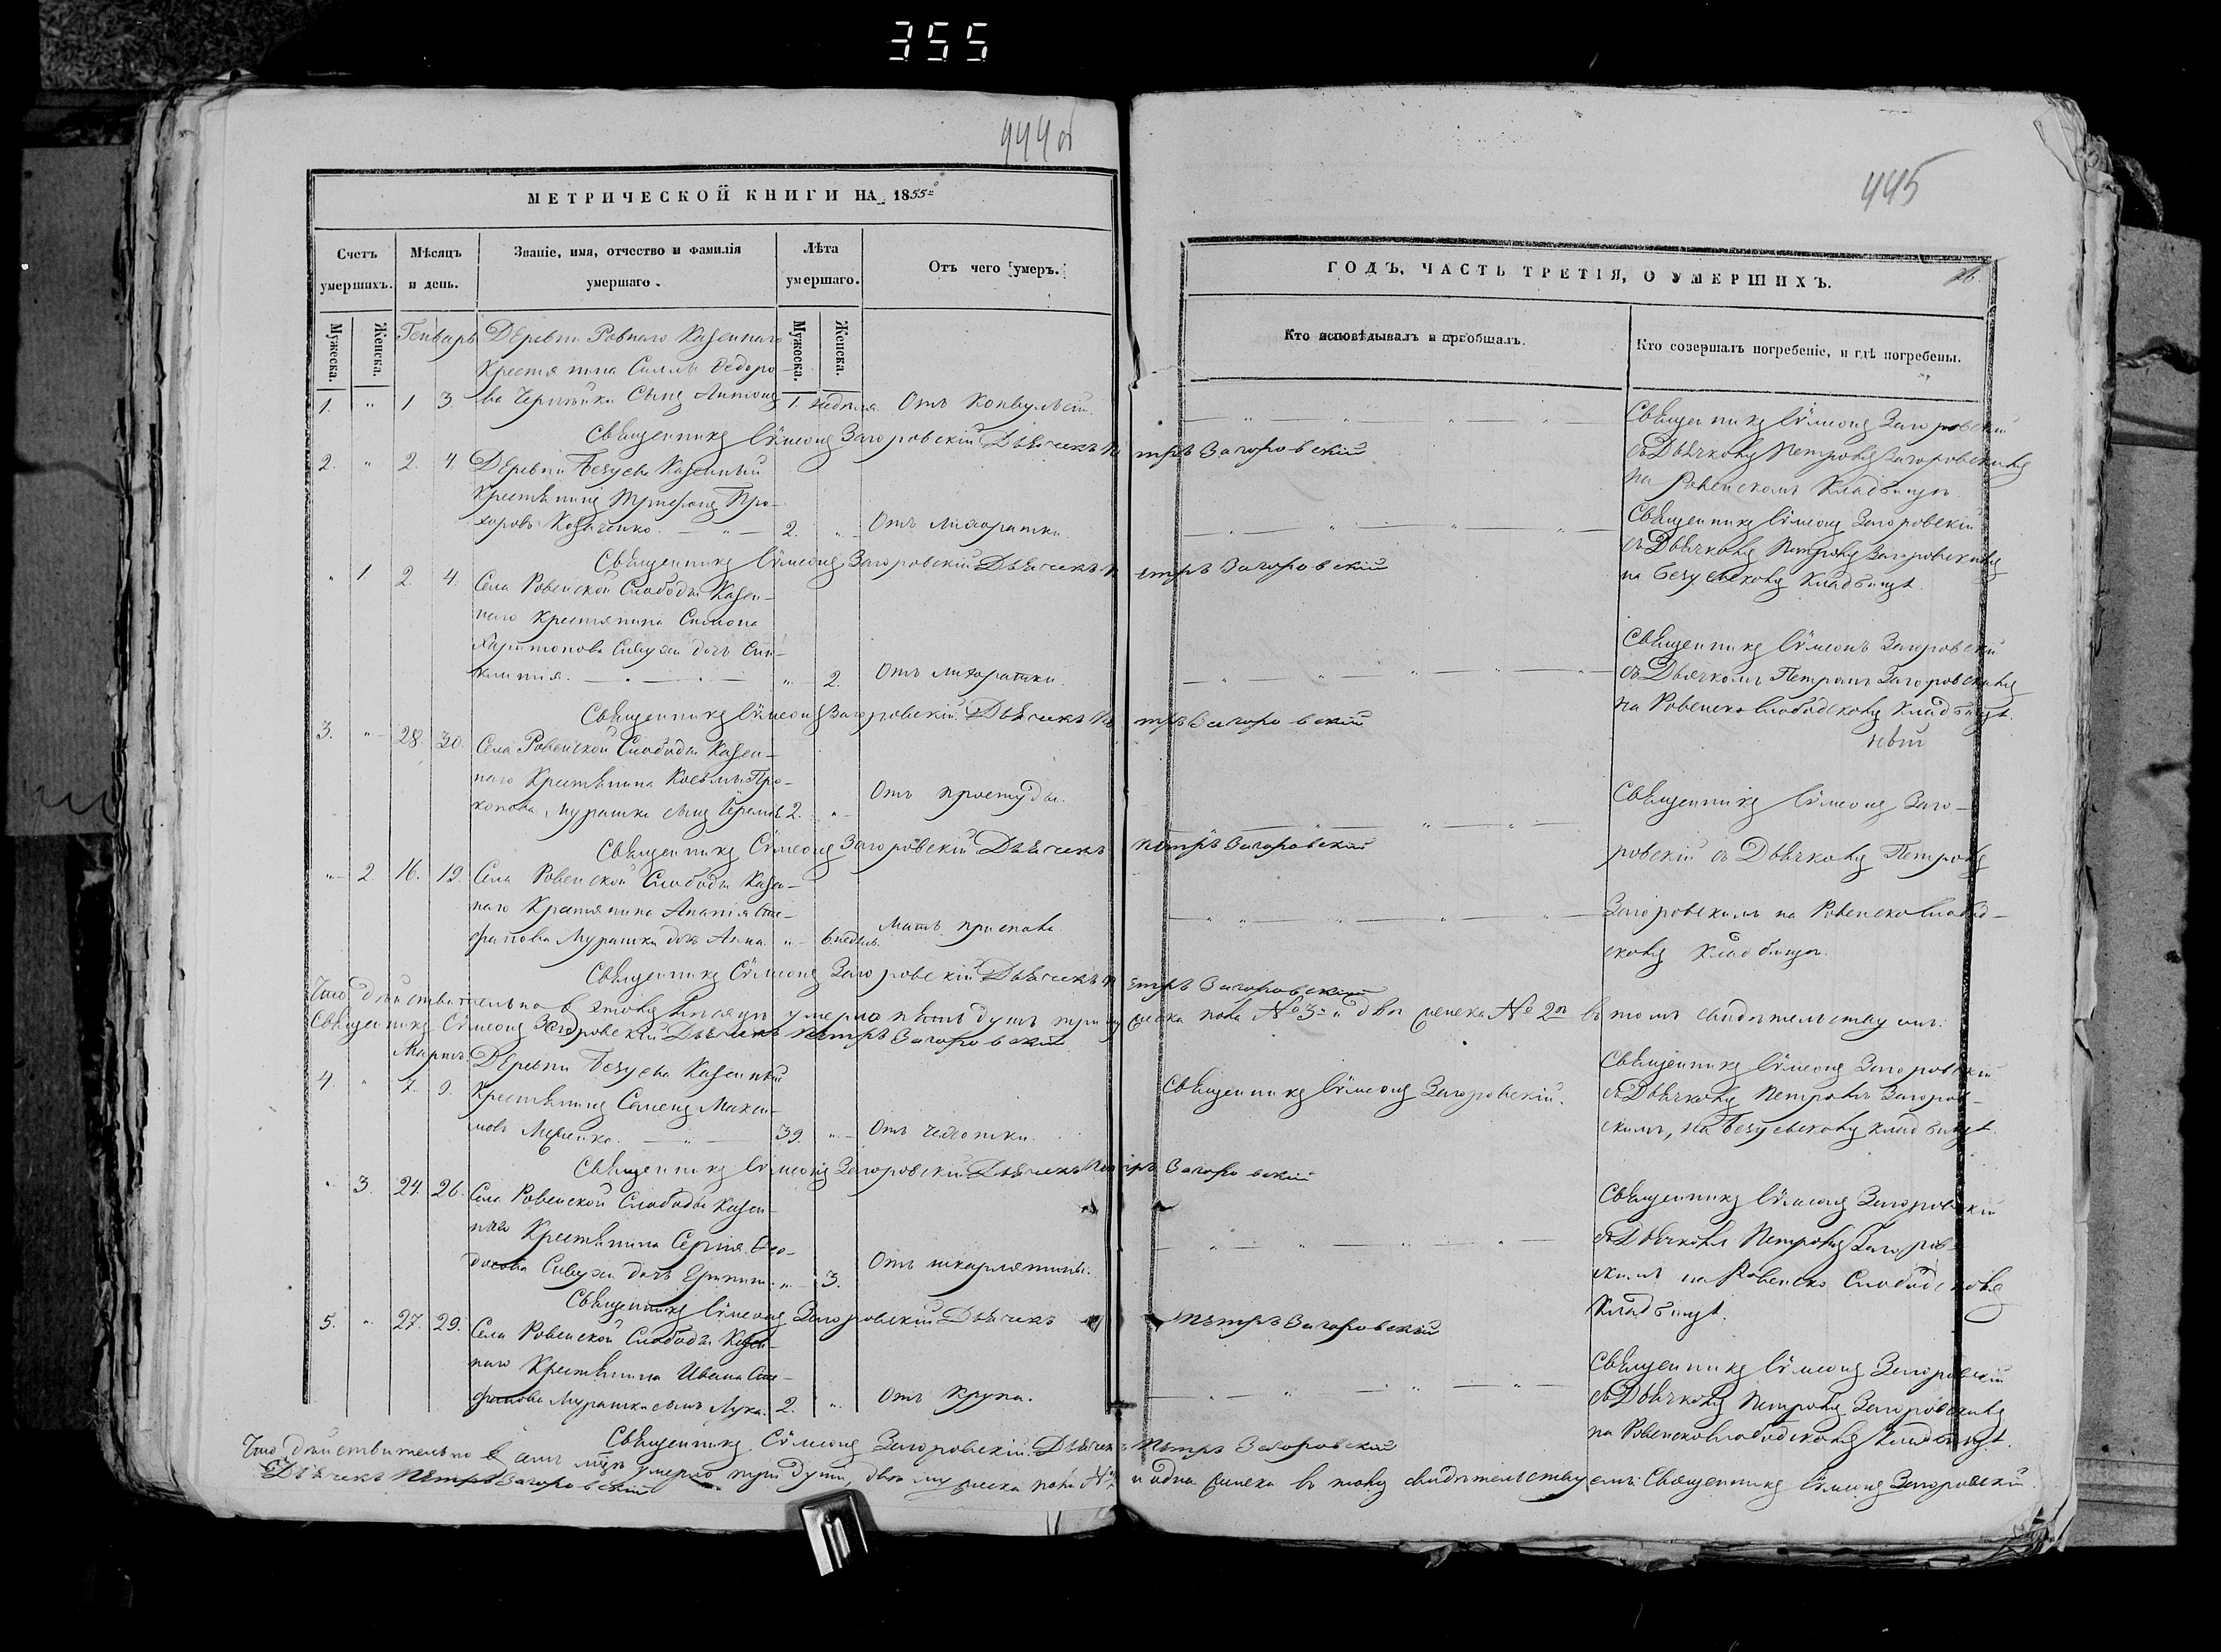 355
444 об
МЕТРИЧЕСКОЙ КНИГИ НА 1855й
Счетъ умершихъ.
Мѣсяцъ и день.
Званіе, имя, отчество и фамилія умершаго.
Лѣта умершаго.
Отъ чего умеръ.
Мужеска.
Женска.
Мужеска.
Женска.
Генварь
Деревни Ровнаго Казеннаго
Крестянина Силы Федоро-
1. " 1 3. ва Сынъ Антонъ 1. неділя Отъ Конвульсій.
Священникъ Сѵмеонъ Загоровскій Дьячекъ Петръ Загоровскій
2. " 2. 4. Деревни Безуева Казенный
Крестьянинъ Трифонъ Про-
харовъ Козаченко. — " — 2. " Отъ лихорадки.
Священникъ Сѵмеонъ Загоровскій Дьячекъ Петръ Загоровскій
" 1. 2. 4. Села Ровенской Слободы Казен-
наго Крестянина Симона
Харитонова Сивухи дочь
" 2. Отъ лихорадки.
Священникъ Сѵмеонъ Загоровскій Дьячекъ Петръ Загоровскій
3. " 28. 30. Села Ровенской Слободы Казен-
наго Крестьянина Космы Про-
копова Мурашка сынъ Іеремія 2. " Отъ простуды.
Священникъ Сѵмеонъ Загоровскій Дьячекъ Петръ Загоровскій
" 2 16. 19. Села Ровенской Слободы Казен-
наго Крестянина Анатія Сте-
фанова Мурашки дочь Анна " 6 недѣль. Мать приспала
Священникъ Сѵмеонъ Загоровскій Дьячекъ Петръ Загоровскій
Что дѣйствительно въ этомъ мѣсяцѣ умерло пять душъ три мужеска пола № 3й и двѣ женска № 2й въ томъ свидѣтельствуемъ:
Священникъ Сѵмеонъ Загоровскій Дьячекъ Петръ Загоровскій
Мартъ. Деревни Безуева Казенный
4. " 7. 9. Крестьянинъ Семенъ Макси-
мовъ 39. " Отъ чахотки.
Священникъ Сѵмеонъ Загоровскій Дьячекъ Петръ Загоровскій
" 3. 24. 26. Села Ровенской Слободы Казен-
наго Крестьянина Сергія Фео-
досова Сивухи дочь " 3. Отъ шкарлятины.
Священникъ Сѵмеонъ Загоровскій Дьячекъ Петръ Загоровскій
5. " 27. 29. Села Ровенской Слободы Казен-
наго Крестьянина Ивана Сте-
фанова Мурашка сынъ Лука. 2. " Отъ крупа.
Священникъ Сѵмеонъ Загоровскій Дьячекъ Петръ Загоровскій
Что дѣйствительно въ семъ мѣсяцѣ умерло три души, двѣ мужеска пола и одна женска въ томъ свидѣтельствуемъ: Священникъ Сѵмеонъ Загоровскій.
Дьячекъ Петръ Загоровскій
445
ГОДЪ, ЧАСТЬ ТРЕТІЯ, О УМЕРШИХЪ.
26.
Кто исповѣдывалъ и пріобщалъ.
Кто совершалъ погребеніе, и гдѣ погребены.
Священникъ Сѵмеонъ Загоровскій
съ Дьячкомъ Петромъ Загоровскимъ
на Ровенскомъ Кладбищѣ.
Священникъ Сѵмеонъ Загоровскій
съ Дьячкомъ Петромъ Загоровскимъ
на Безуевскомъ Кладбищѣ.
Священникъ Сѵмеонъ Загоровскій
съ Дьячкомъ Петромъ Загоровскимъ
на Ровенскослободскомъ Кладбищѣ.
Священникъ Сѵмеонъ Заго-
ровскій съ Дьячкомъ Петромъ
Загоровскимъ на Ровенскослобод-
скомъ Кладбищѣ.
Священникъ Сѵмеонъ Загоровскій.
Священникъ Сѵмеонъ Загоровскій
съ Дьячкомъ Петромъ Загоров-
скимъ, на Безуевскомъ кладбищѣ.
Священникъ Сѵмеонъ Загоровскій
съ Дьячкомъ Петромъ Загоров-
скимъ на Ровенско Слободскомъ
Кладбищѣ.
Священникъ Сѵмеонъ Загоровскій
съ Дьячкомъ Петромъ Загоровскимъ
на Ровенскослободскомъ Кладбищѣ.